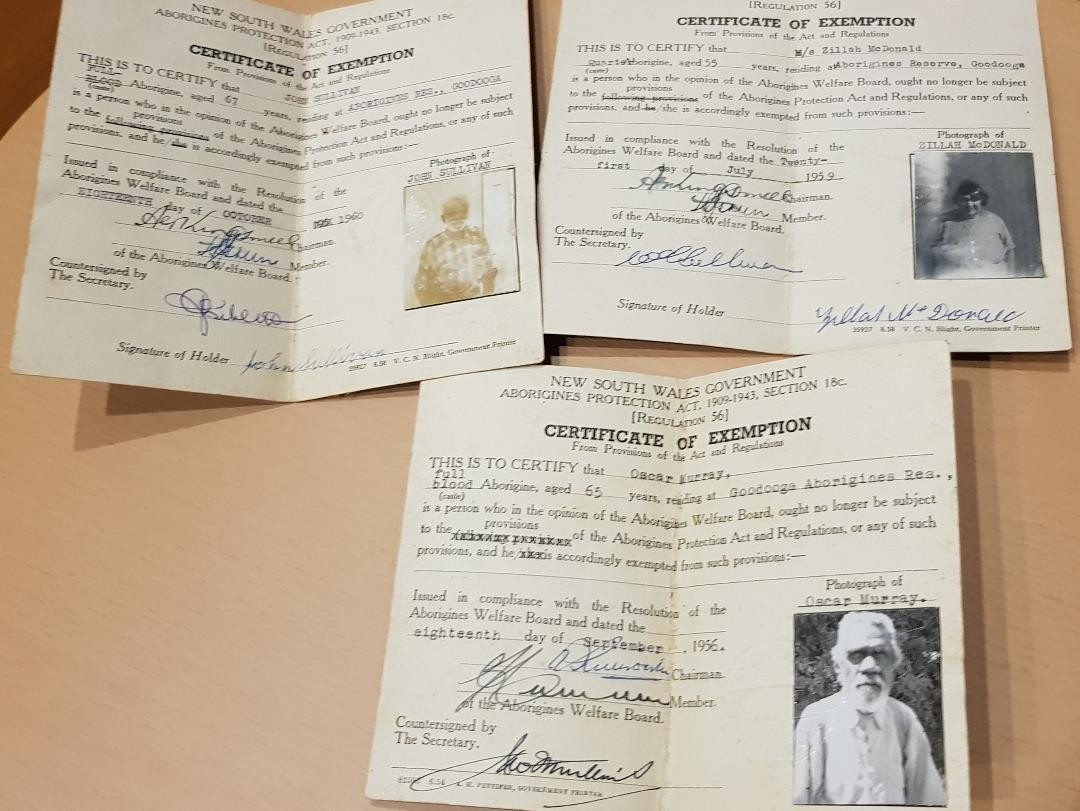 NEW SOUTH WALES GOVERNMENT
ABORIGINES PROTECTION ACT, 1909-1943, SECTION 18c.
[REGULATION 56]
CERTIFICATE OF EXEMPTION
From Provisions of the Act and Regulations
THIS IS TO CERTIFY that JOHN SULLIVAN
FULL-
BLOOD Aborigine, aged 67 years, residing at ABORIGINES RES., GOODOOGA
(caste)
is a person who in the opinion of the Aborigines Welfare Board, ought no longer be subject
provisions
to the following provisions of the Aborigines Protection Act and Regulations, or any of such
provisions, and he/she is accordingly exempted from such provisions:—
Issued in compliance with the Resolution of the
Aborigines Welfare Board and dated the
EIGHTEENTH day of OCTOBER 1960
Chairman.
Member.
of the Aborigines Welfare Board.
Countersigned by
The Secretary.
Signature of Holder John Sullivan
Photograph of
JOHN SULLIVAN
35927 8.58 V. C. N. Blight, Government Printer
[REGULATION 56]
CERTIFICATE OF EXEMPTION
From Provisions of the Act and Regulations
THIS IS TO CERTIFY that M/s Zillah McDonald
Aborigine, aged 55 years, residing at Aborigines Reserve, Goodooga
(caste)
is a person who in the opinion of the Aborigines Welfare Board, ought no longer be subject
provisions
to the following provisions of the Aborigines Protection Act and Regulations, or any of such
provisions, and he/she is accordingly exempted from such provisions:—
Issued in compliance with the Resolution of the
Aborigines Welfare Board and dated the Twenty-
first day of July 1959
Chairman.
Member.
of the Aborigines Welfare Board.
Countersigned by
The Secretary.
Photograph of
ZILLAH McDONALD
Signature of Holder Zillah McDonald
35927 8.58 V. C. N. Blight, Government Printer
NEW SOUTH WALES GOVERNMENT
ABORIGINES PROTECTION ACT, 1909-1943, SECTION 18c.
[REGULATION 56]
CERTIFICATE OF EXEMPTION
From Provisions of the Act and Regulations
THIS IS TO CERTIFY that Oscar Murray,
full
blood Aborigine, aged 65 years, residing at Goodooga Aborigines Res.,
(caste)
is a person who in the opinion of the Aborigines Welfare Board, ought no longer be subject
provisions
to the of the Aborigines Protection Act and Regulations, or any of such
provisions, and he/ is accordingly exempted from such provisions:—
Issued in compliance with the Resolution of the
Aborigines Welfare Board and dated the
eighteenth day of September, 1956.
Chairman.
Member.
of the Aborigines Welfare Board.
Countersigned by
The Secretary.
Photograph of
Oscar Murray.
6.54 A. H. PETTIFER, GOVERNMENT PRINTER